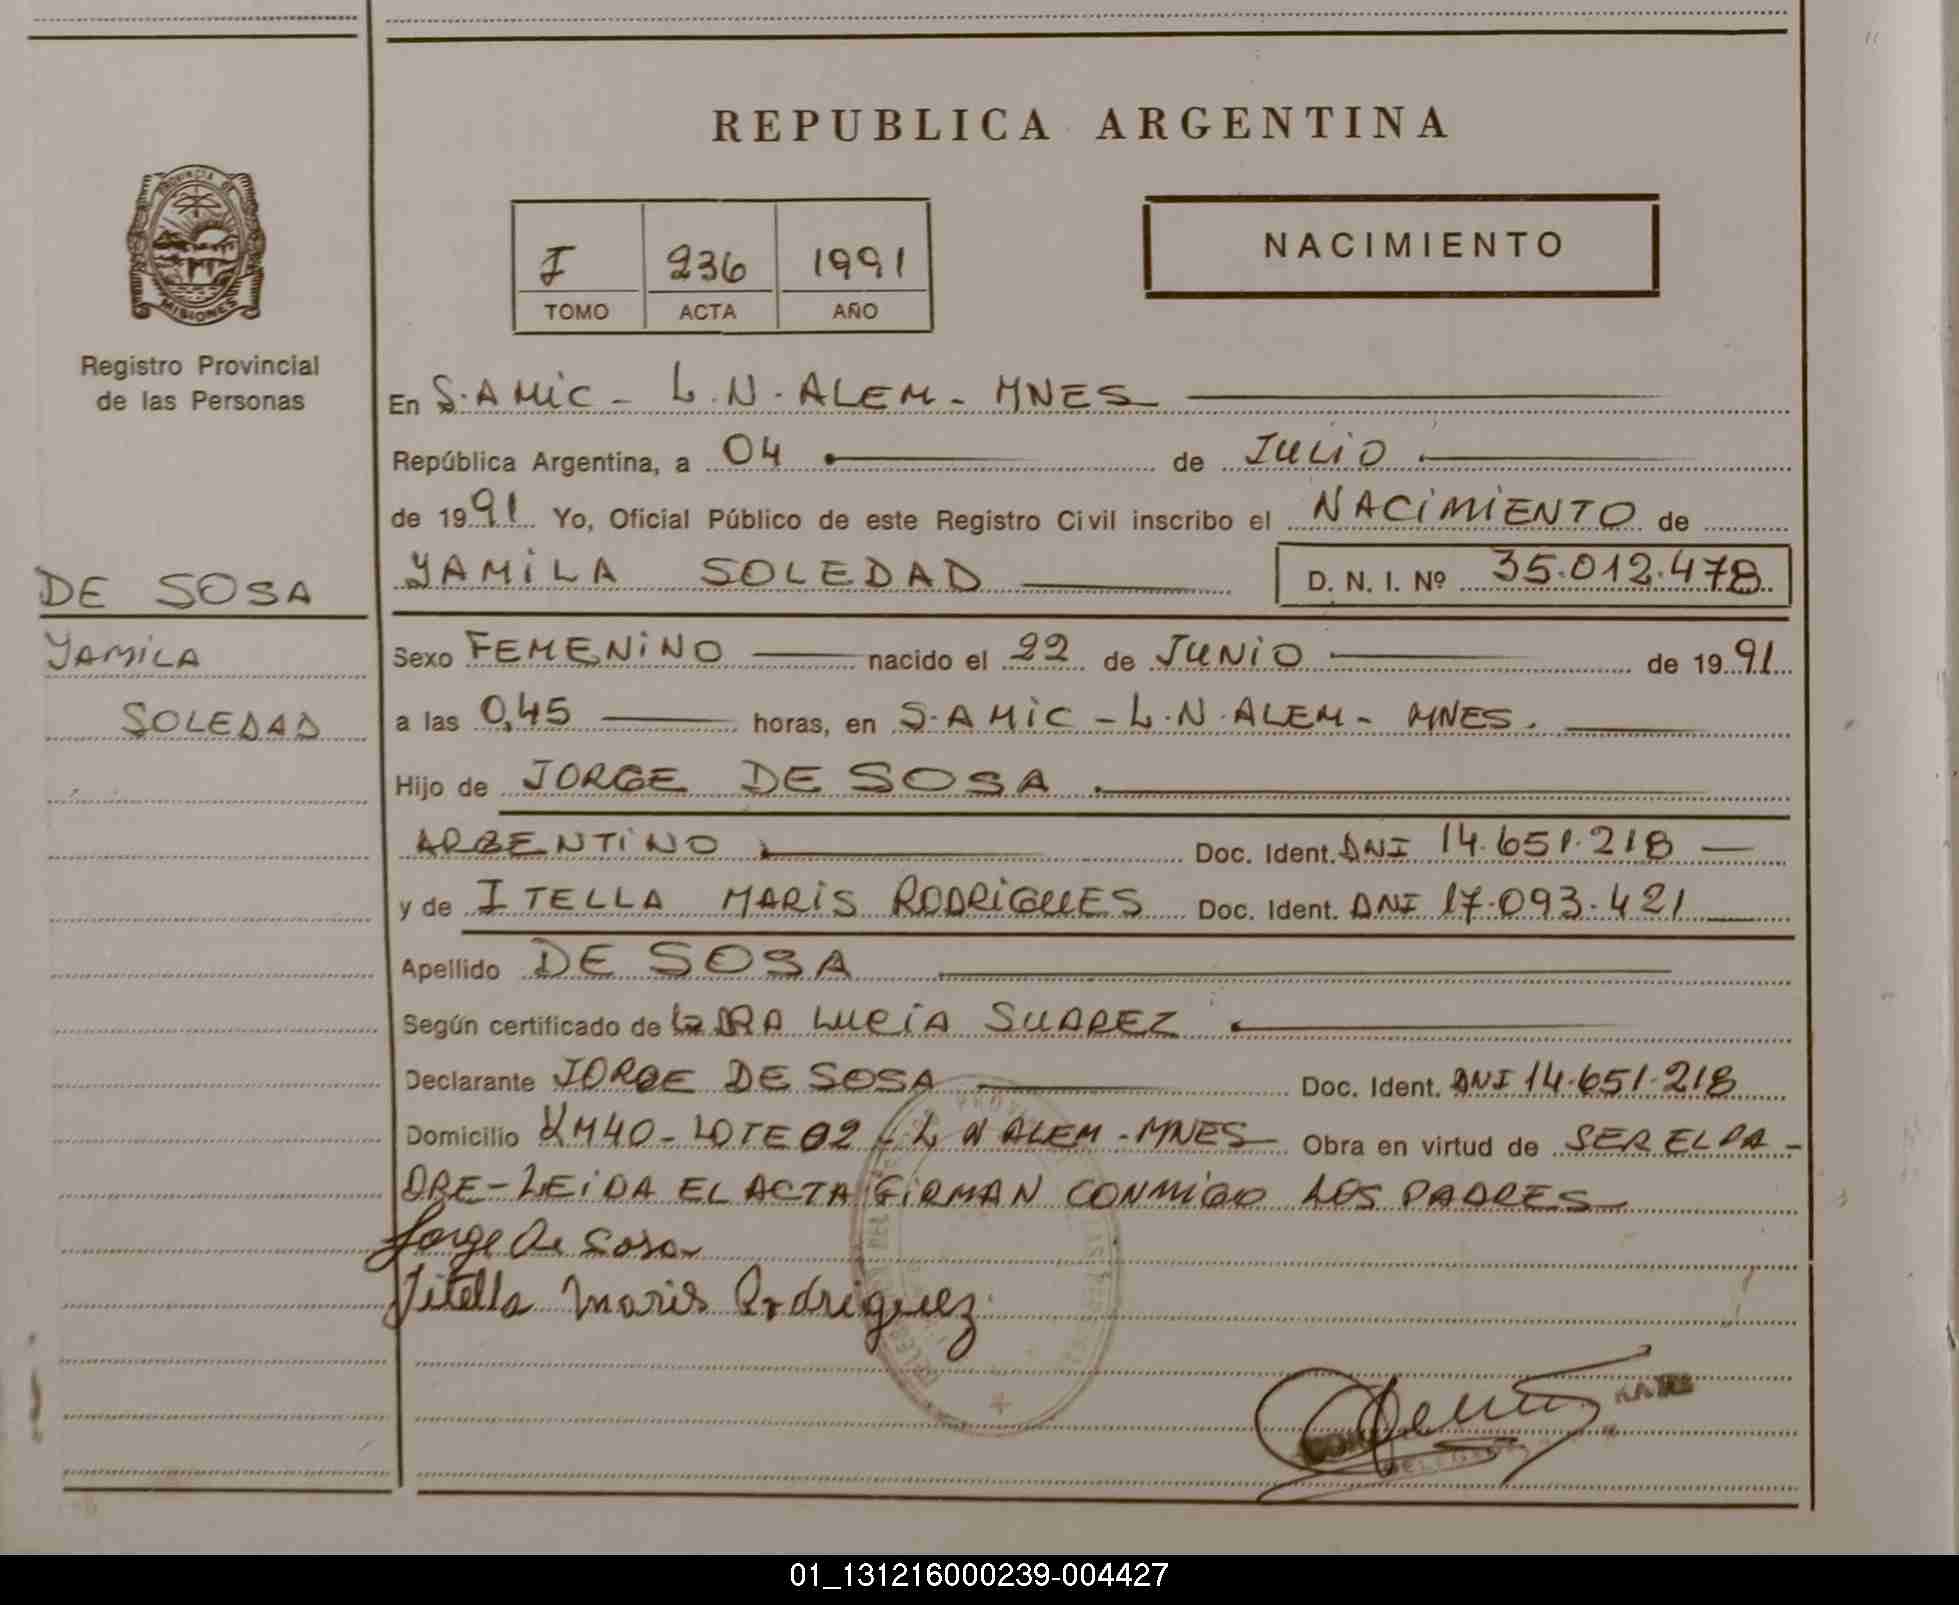 REPUBLICA ARGENTINA
PROVINCIA DE
MISIONES
Registro Provincial
de las Personas
I 236 1991
TOMO ACTA AÑO
NACIMIENTO
En S.AMIC - L.N.ALEM - MNES
República Argentina, a 04 de JULIO
de 1991 Yo, Oficial Público de este Registro Civil inscribo el NACIMIENTO de
YAMILA SOLEDAD D. N. I. Nº 35.012.478
DE SOSA
YAMILA
SOLEDAD
Sexo FEMENINO nacido el 22 de JUNIO de 1991
a las 0,45 horas, en S.AMIC - L.N.ALEM - MNES.
Hijo de JORGE DE SOSA
ARGENTINO Doc. Ident. DNI 14.651.218
y de ITELLA MARIS RODRIGUES Doc. Ident. DNI 17.093.421
Apellido DE SOSA
Según certificado de LA DRA LUCIA SUAREZ
Declarante JORGE DE SOSA Doc. Ident. DNI 14.651.218
Domicilio KM40 - LOTE 02 - L N ALEM - MNES Obra en virtud de SER EL PA-
DRE - LEIDA EL ACTA FIRMAN CONMIGO LOS PADRES
Jorge De Sosa
Itella Maris Rodriguez
01_131216000239-004427